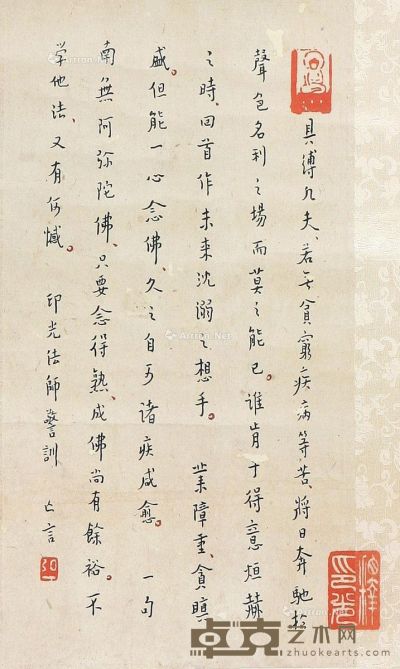 具縛凡夫、若无貧窮疾病等苦、將日奔馳於
聲色名利之場而莫之能已。誰肯于得意烜赫
之時、回首作未来沈溺之想乎。 業障重、貪瞋
盛。但能一心念佛、久之自可諸疾咸愈。 一句
南無阿弥陀佛、只要念得熟、成佛尚有餘裕。不
学他法、又有何憾。 印光法師警訓 亡言
卓克艺术网
www.zhuokearts.com